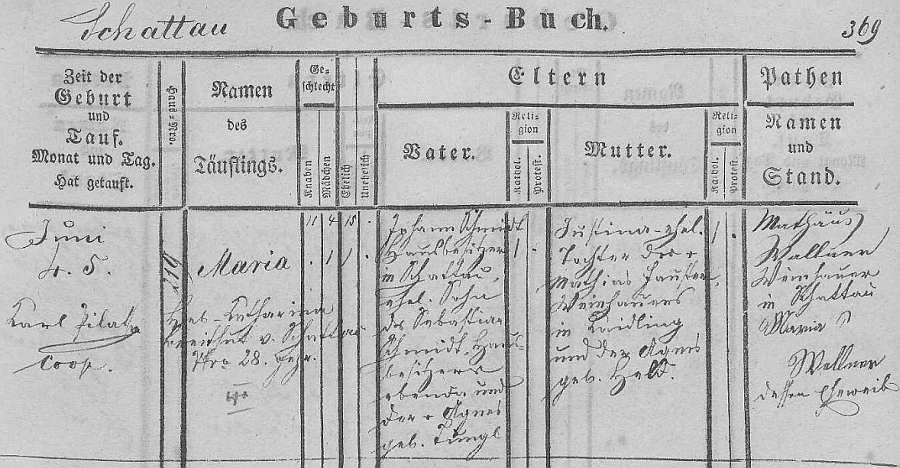 Schattau
Geburts-Buch.
369
Zeit der
Geburt
und
Tauf.
Monat und Tag.
Hat getauft.
Haus-Nro.
Namen
des
Täuflings.
Ge-
schlecht
Knaben
Mädchen
Ehelich
Unehelich
Eltern
Vater.
Reli-
gion
Kathol.
Protest.
Mutter.
Reli-
gion
Kathol.
Protest.
Pathen
Namen
und
Stand.
11 4 15 .
Juni
4. 5.
Karl Pilat
Coop.
Maria
. 1 1 .
Heb. Katharina
v. Schattau
Nro 28. gepr.
Johann Schmidt
Hausbesitzer
in Schattau,
ehel. Sohn
des Sebastian
Schmidt, Haus-
besitzers
ebenda und
der Agnes
geb. Tüngl
1 .
Justina ehel.
Tochter des
Mathias
Weinhauers
in Kaidling
und der Agnes
geb. Held.
1 .
Mathäus
Wallner
Weinhauer
in Schattau
Maria
Wallner
dessen Eheweib